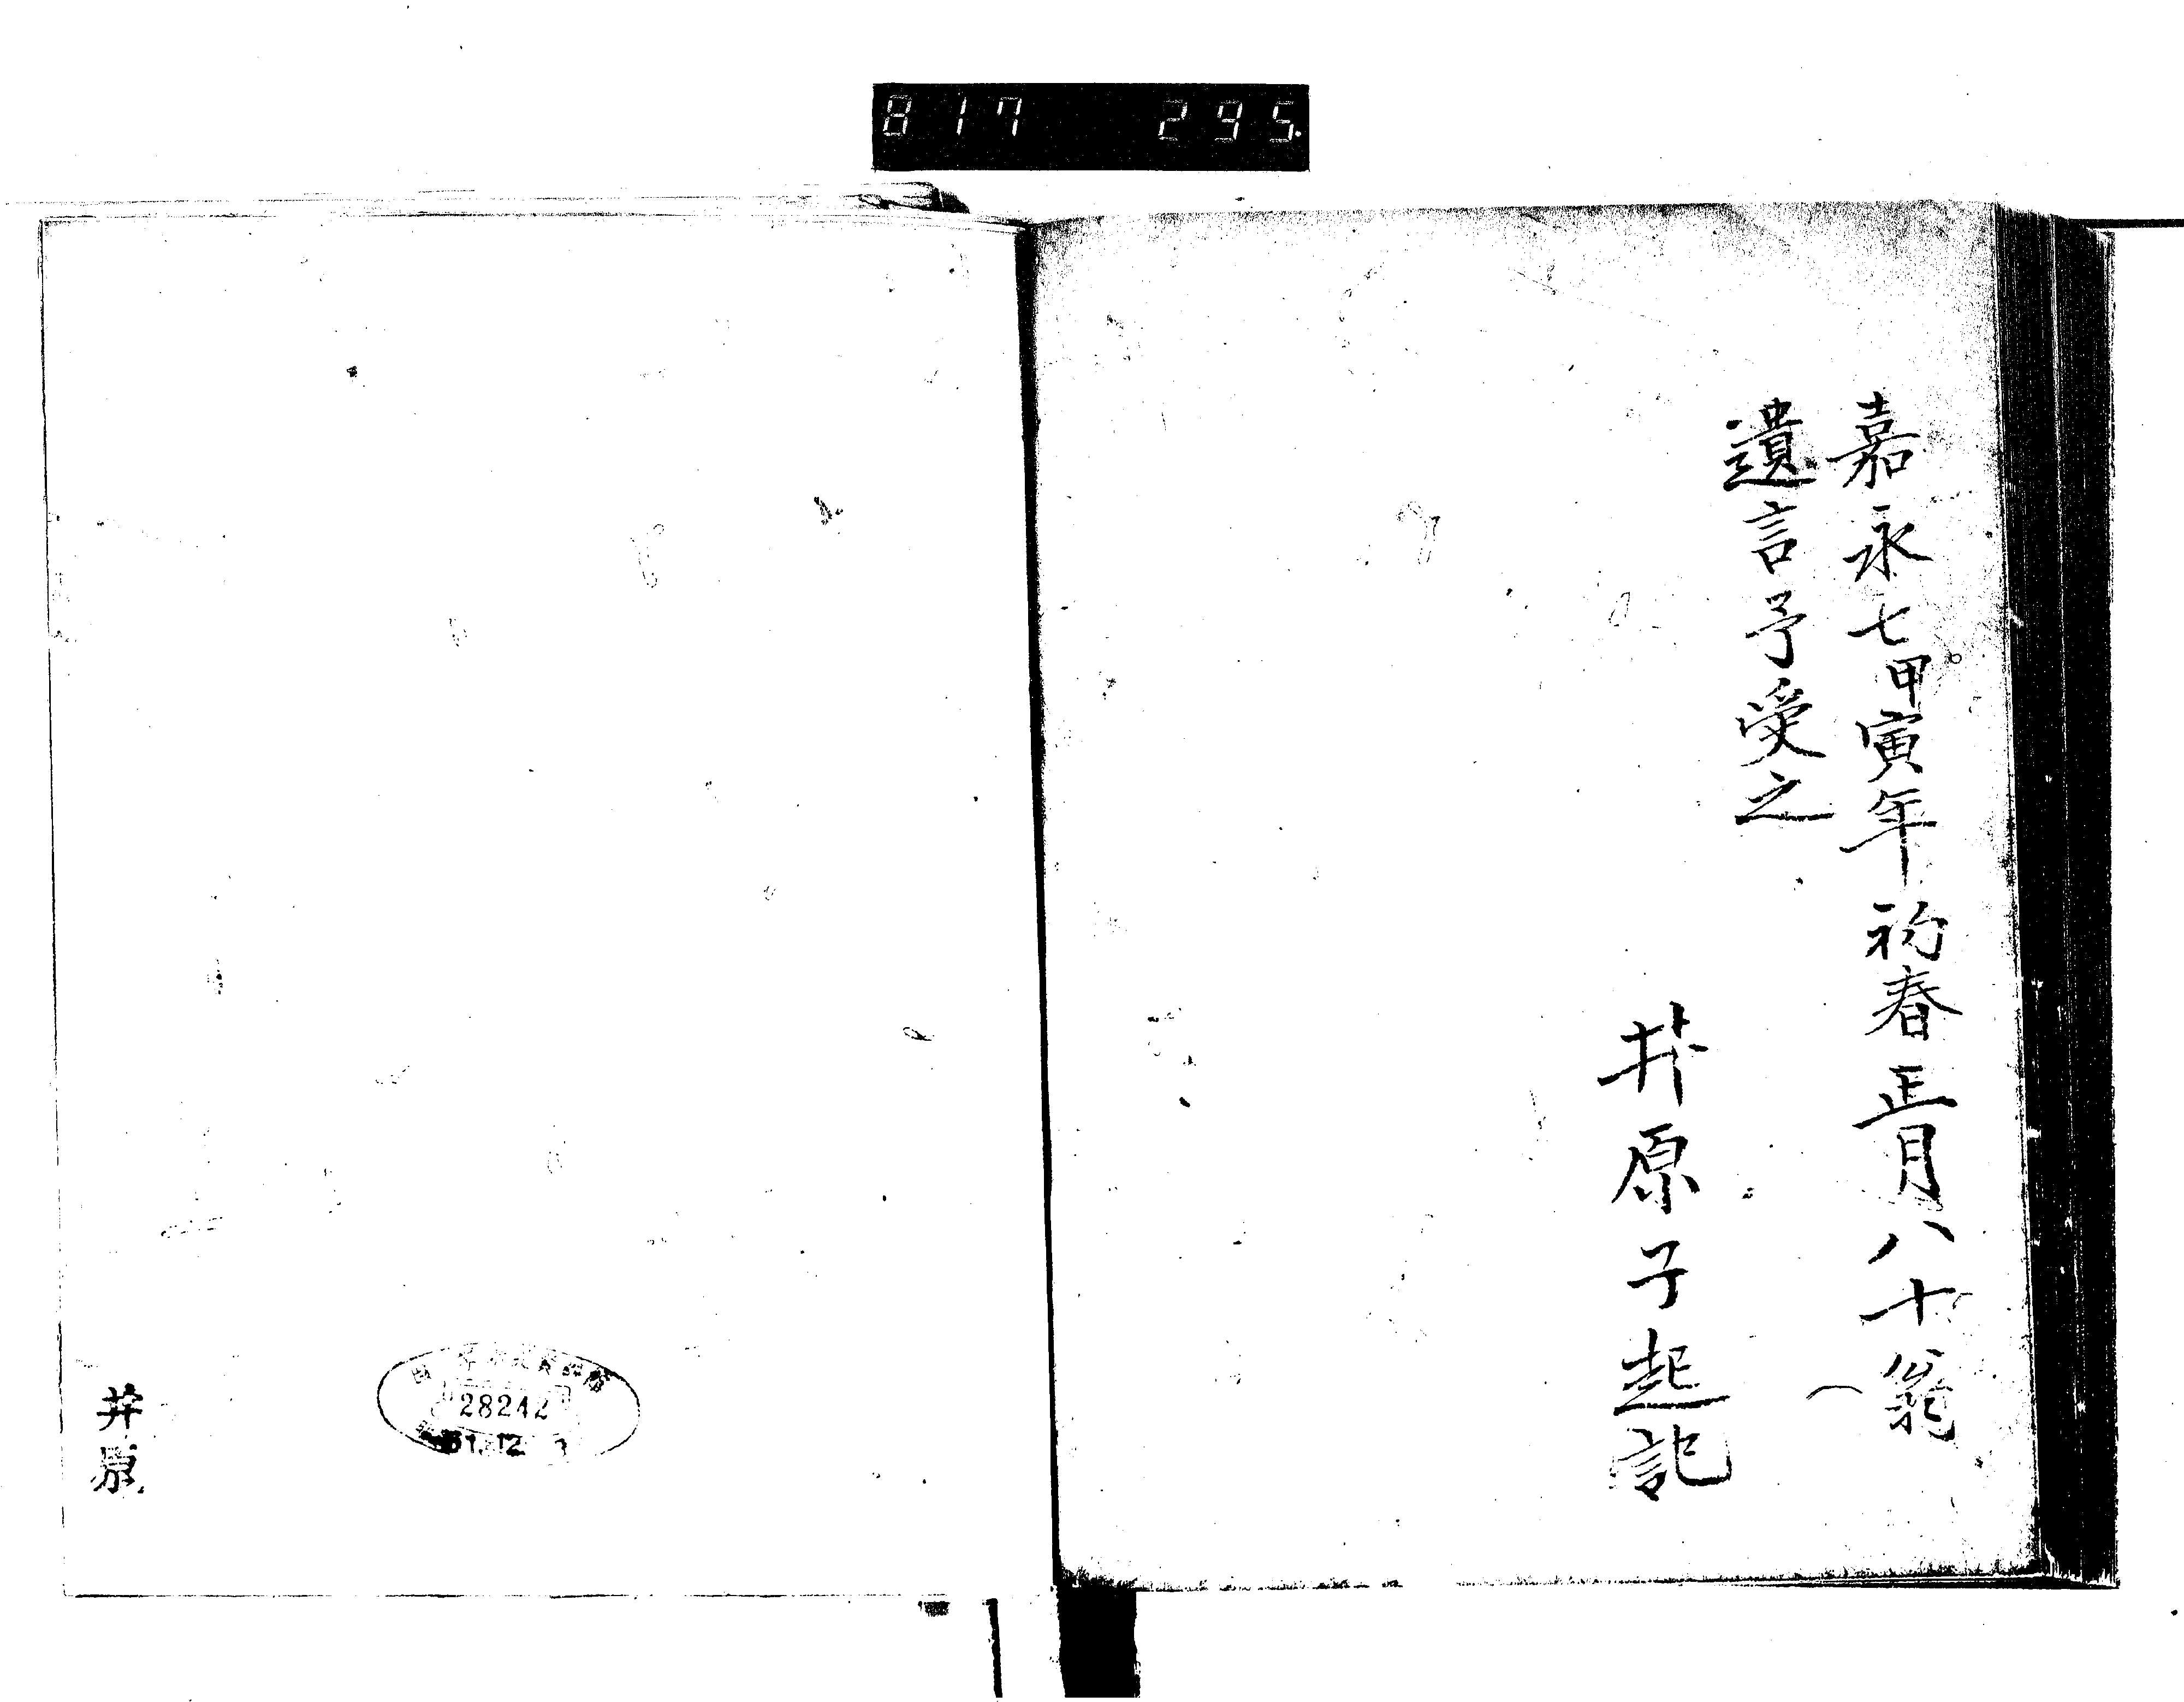 817 295.
嘉永七甲寅年初春正月八十翁
遺言予受之
井原子起記
井原
28242